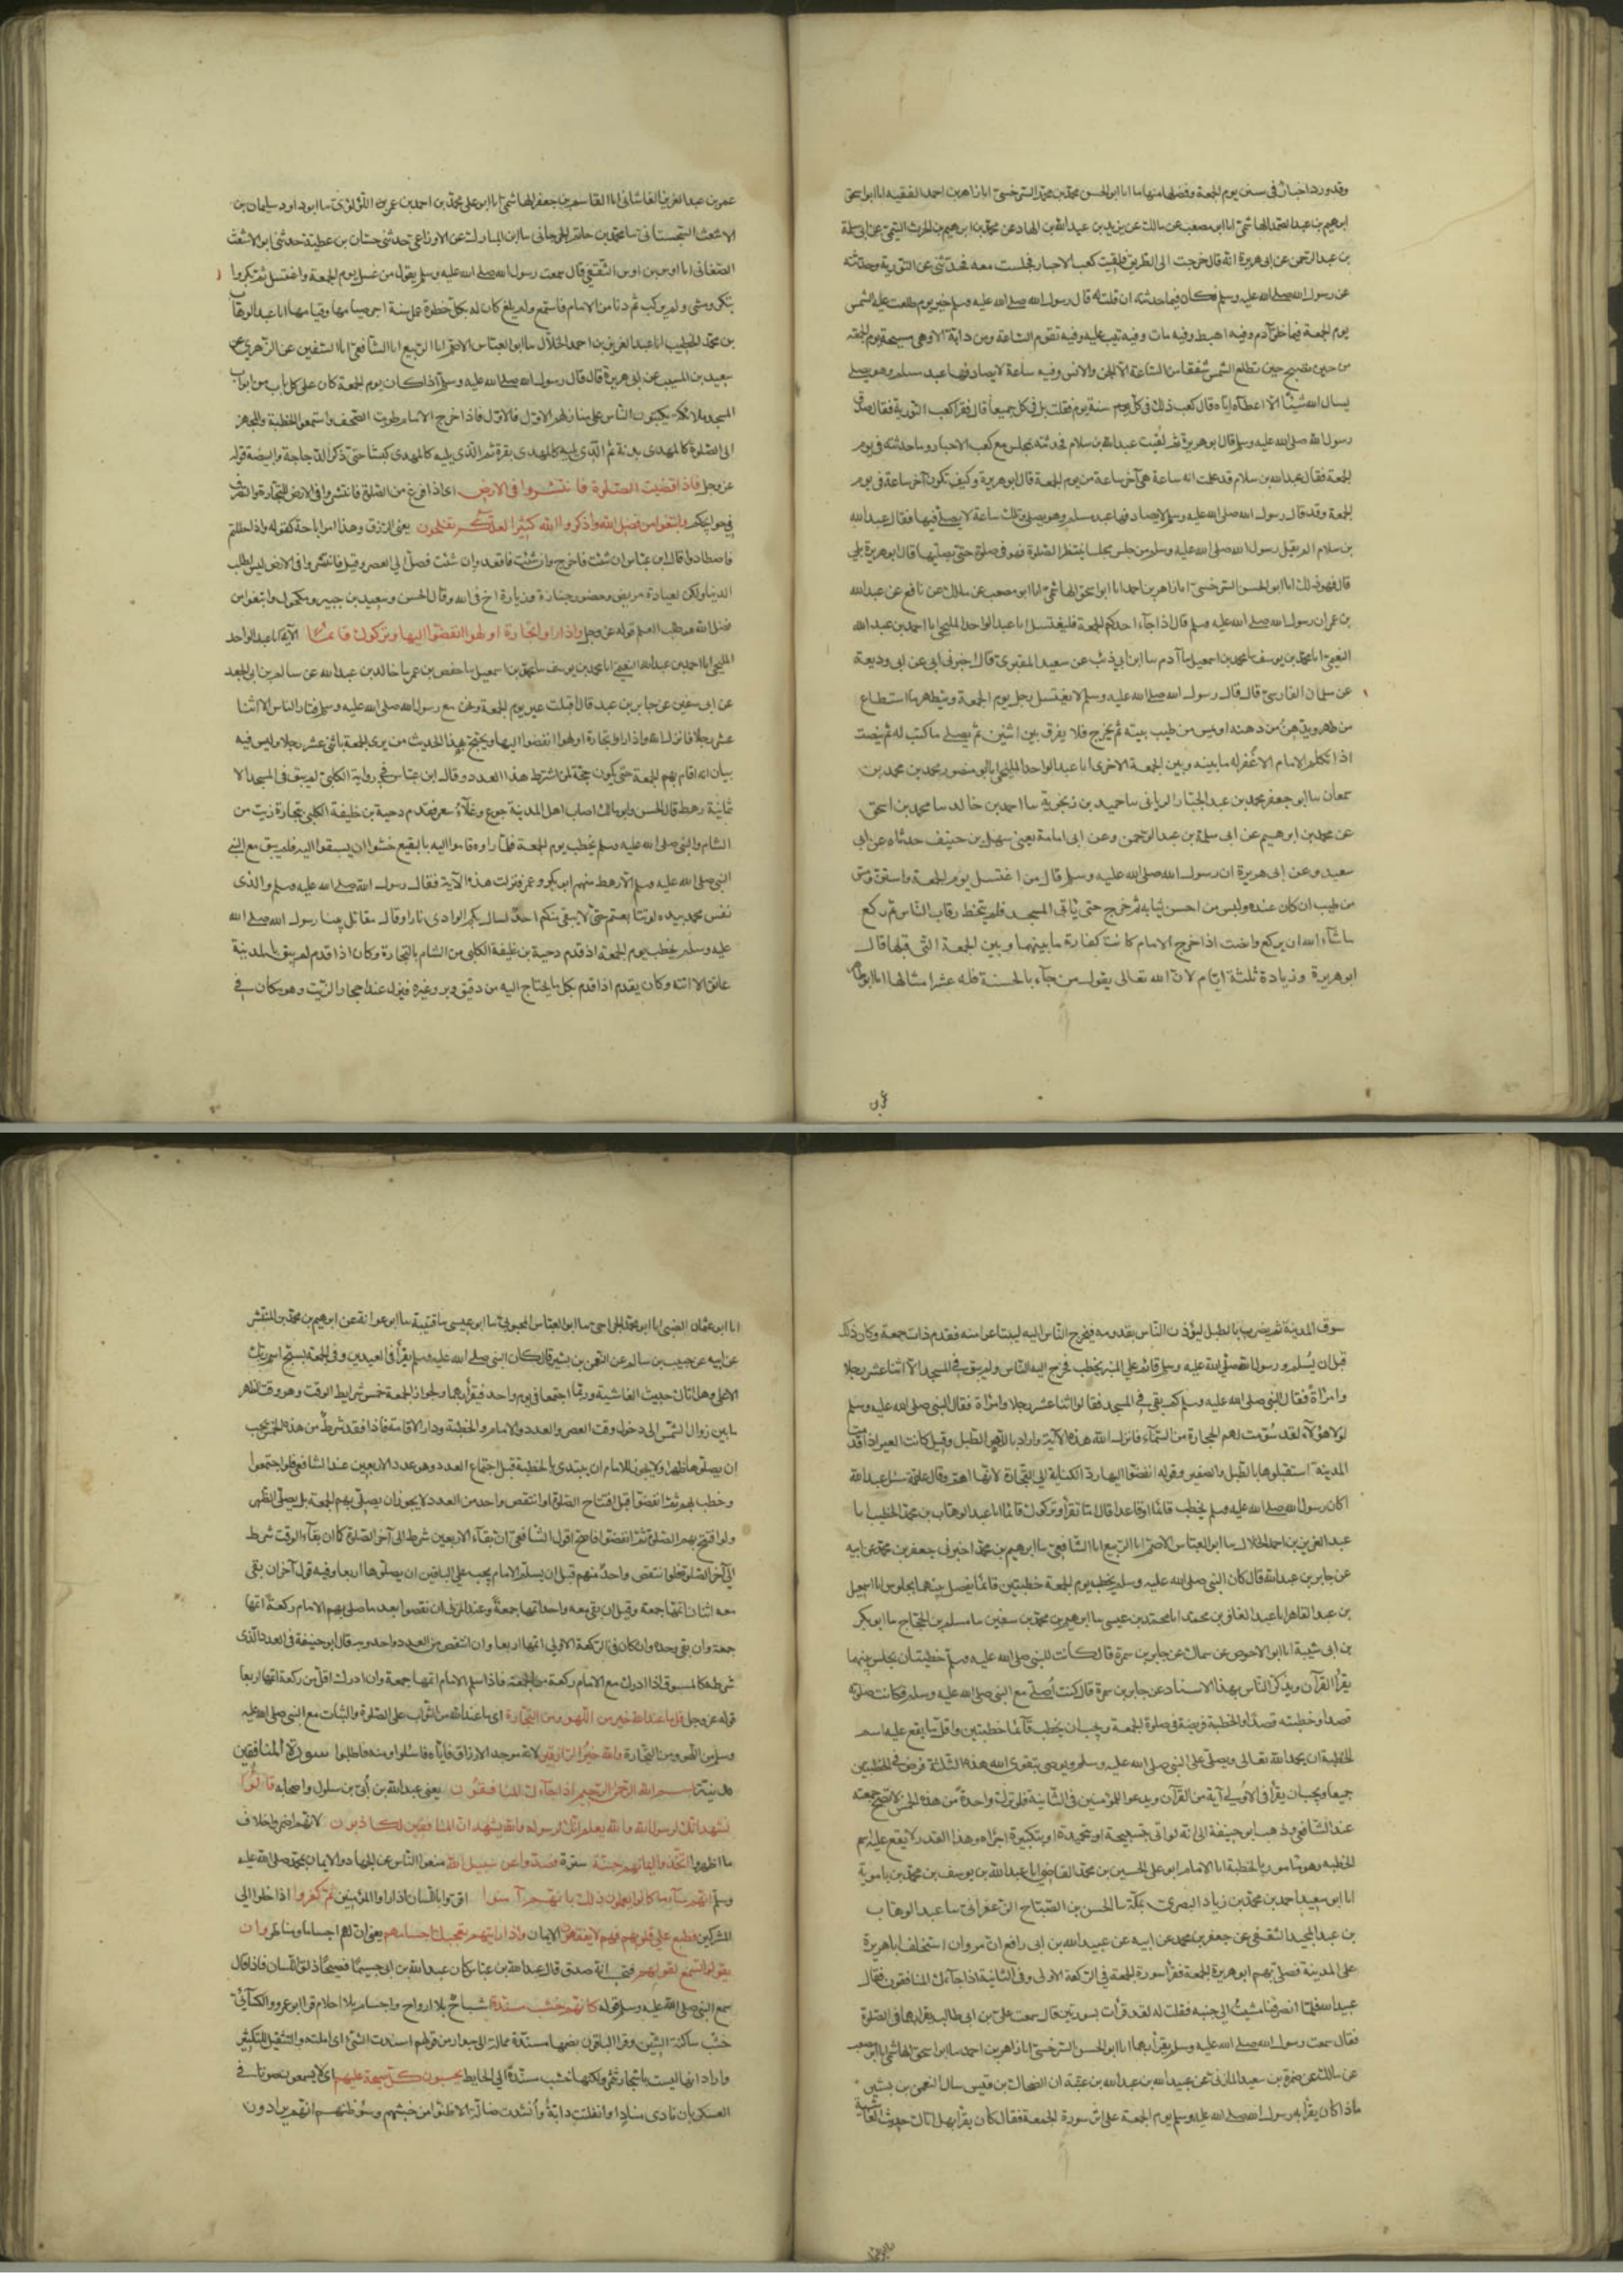 وقد ورد اخبار فى سنن يوم الجمعة وفضلها منها ما اناابوالحسن محمد بن محمد السرخسى انا زاهر بن احمد الفقيه انا ابواسحق
ابرهيم بن عبد الصمد الهاشمى انا ابومصعب عن مالك عن يزيد بن عبد الله بن الهاد عن محمد بن ابرهيم بن الحرث التيمى عن ابى سلمة
بن عبد الرحمن عن ابى هريرة انه قال خرجت الى الطور فلقيت كعب الاحبار فجلست معه فحدثنى عن التورية وحدثته
عن رسول الله صلى الله عليه وسلم فكان فيما حدثته ان قلت له قال رسول الله صلى الله عليه وسلم خير يوم طلعت عليه الشمس
يوم الجمعة فيه خلق آدم وفيه اهبط وفيه مات وفيه تيب عليه وفيه تقوم الساعة وما من دابة الا وهى مسيخة يوم الجمعة
من حين تصبح حين تطلع الشمس شفقا من الساعة الا الجن والانس وفيه ساعة لا يصادفها عبد مسلم وهو يصلى
يسال الله شيئا الا اعطاه اياه قال كعب ذلك فى كل سنة يوم فقلت بل فى كل جمعة قال فقرأ كعب التورية فقال صدق
رسول الله صلى الله عليه وسلم قال ابوهريرة ثم لقيت عبد الله بن سلام فحدثته بمجلسى مع كعب الاحبار وما حدثته فى يوم
الجمعة فقال عبد الله بن سلام قد علمت اية ساعة هى آخر ساعة من يوم الجمعة قال ابوهريرة وكيف تكون آخر ساعة فى يوم
الجمعة وقد قال رسول الله صلى الله عليه وسلم لا يصادفها عبد مسلم وهو يصلى وتلك ساعة لا يصلى فيها فقال عبد الله
بن سلام الم يقل رسول الله صلى الله عليه وسلم من جلس مجلسا ينتظر الصلوة فهو فى صلوة حتى يصليها قال ابوهريرة بلى
قال فهو ذلك انا ابوالحسن السرخسى انا زاهر بن احمد انا ابواسحق الهاشمى انا ابومصعب عن مالك عن نافع عن عبد الله
بن عمر ان رسول الله صلى الله عليه وسلم قال اذا جآء احدكم الجمعة فليغتسل انا عبد الواحد المليحى انا احمد بن عبد الله
النعيمى انا محمد بن يوسف نا محمد بن اسمعيل نا آدم نا ابن ابى ذئب عن سعيد المقبرى قال اخبرنى ابى عن ابى وديعة
عن سلمان الفارسى قال قال رسول الله صلى الله عليه وسلم لا يغتسل رجل يوم الجمعة ويتطهر ما استطاع
من طهر ويدهن من دهنه او يمس من طيب بيته ثم يخرج فلا يفرق بين اثنين ثم يصلى ما كتب له ثم ينصت
اذا تكلم الامام الا غفر له ما بينه وبين الجمعة الاخرى انا عبد الواحد المليحى انا ابو منصور محمد بن محمد بن
سمعان نا ابو جعفر محمد بن عبد الجبار الريانى نا حميد بن زنجوية نا احمد بن خالد نا محمد بن اسحق
عن محمد بن ابرهيم عن ابى سلمة بن عبد الرحمن وعن ابى امامة يعنى سهل بن حنيف حدثاه عن ابى
سعيد وعن ابى هريرة ان رسول الله صلى الله عليه وسلم قال من اغتسل يوم الجمعة واستن ومس
من طيب ان كان عنده ولبس من احسن ثيابه ثم خرج حتى ياتى المسجد فلم يتخط رقاب الناس ثم ركع
ما شآء الله ان يركع وانصت اذا خرج الامام كانت كفارة ما بينها وبين الجمعة التى قبلها قال
ابوهريرة وزيادة ثلثة ايام لان الله تعالى يقول من جآء بالحسنة فله عشر امثالها انا ابوطاهر
عمر بن عبد العزيز القاشانى انا القاسم بن جعفر الهاشمى انا ابوعلى محمد بن احمد بن عمرو اللؤلؤى نا ابوداود سليمان بن
الاشعث السجستانى نا محمد بن حاتم الجرجانى نا ابن المبارك عن الاوزاعى حدثنى حسان بن عطية حدثنى ابوالاشعث
الصنعانى انا اوس بن اوس الثقفى قال سمعت رسول الله صلى الله عليه وسلم يقول من غسل يوم الجمعة واغتسل ثم بكر وا
بتكر ومشى ولم يركب ثم دنا من الامام فاستمع ولم يلغ كان له بكل خطوة عمل سنة اجر صيامها وقيامها انا عبد الوهاب
بن محمد الخطيب انا عبد العزيز بن احمد الخلال نا ابو العباس الاصم انا الربيع انا الشافعى انا سفين عن الزهرى عن
سعيد بن المسيب عن ابى هريرة قال قال رسول الله صلى الله عليه وسلم اذا كان يوم الجمعة كان على كل باب من ابواب
المسجد ملائكة يكتبون الناس على منازلهم الاول فالاول فاذا خرج الامام طويت الصحف واستمعوا الخطبة والمهجر
الى الصلوة كالمهدى بدنة ثم الذى يليه كالمهدى بقرة ثم الذى يليه كالمهدى كبشا حتى ذكر الدجاجة والبيضة قوله
عز وجل فاذا قضيت الصلوة فانتشروا فى الارض اى اذا فرغ من الصلوة فانتشروا فى الارض للتجارة والتصرف
فى حوائجكم وابتغوا من فضل الله واذكروا الله كثيرا لعلكم تفلحون يعنى الرزق وهذا امر اباحة كقوله واذا حللتم
فاصطادوا قال ابن عباس ان شئت فاخرج وان شئت فاقعد وان شئت فصل الى العصر وقيل فانتشروا فى الارض ليس لطلب
الدنيا ولكن لعيادة مريض وحضور جنازة وزيارة اخ فى الله وقال الحسن وسعيد بن جبير ومكحول وابتغوا من
فضل الله هو طلب العلم قوله عز وجل واذا راوا تجارة او لهوا انفضوا اليها وتركوك قائما الآية انا عبد الواحد
المليحى انا احمد بن عبد الله النعيمى انا محمد بن يوسف نا محمد بن اسمعيل نا حفص بن عمر نا خالد بن عبد الله عن سالم بن ابى الجعد
عن ابى سفين عن جابر بن عبد قال اقبلت عير يوم الجمعة ونحن مع رسول الله صلى الله عليه وسلم فثار الناس الا اثنا
عشر رجلا فانزل الله واذا راوا تجارة او لهوا انفضوا اليها ويحتج بهذا الحديث من يرى الجمعة باثنى عشر رجلا وليس فيه
بيان انه اقام بهم الجمعة حتى يكون حجة لمن اشترط هذا العدد وقال ابن عباس فى رواية الكلبى لم يبق فى المسجد الا
ثمانية رهط قال الحسن وابو مالك اصاب اهل المدينة جوع وغلآء سعر فقدم دحية بن خليفة الكلبى بتجارة زيت من
الشام والنبى صلى الله عليه وسلم يخطب يوم الجمعة فلما راوه قاموا اليه بالبقيع خشوا ان يسبقوا اليه فلم يبق مع النبى
النبى صلى الله عليه وسلم الا رهط منهم ابو بكر وعمر فنزلت هذه الآية فقال رسول الله صلى الله عليه وسلم والذى
نفس محمد بيده لو تتابعتم حتى لا يبقى منكم احد لسال بكم الوادى نارا وقال مقاتل بينا رسول الله صلى الله
عليه وسلم يخطب يوم الجمعة اذ قدم دحية بن خليفة الكلبى من الشام بالتجارة وكان اذا قدم لم يبق بالمدينة
عاتق الا اتته وكان يقدم اذا قدم بكل ما يحتاج اليه من دقيق وبر وغيره فينزل عند احجار الزيت وهو مكان فى
سوق المدينة ثم يضرب بالطبل ليؤذن الناس بقدومه فيخرج الناس اليه ليبتاعوا منه فقدم ذات جمعة وكان ذلك
قبل ان يسلم ورسول الله صلى الله عليه وسلم قائم على المنبر يخطب فخرج اليه الناس ولم يبق فى المسجد الا اثنا عشر رجلا
وامراة فقال النبى صلى الله عليه وسلم كم بقى فى المسجد فقالوا اثنا عشر رجلا وامراة فقال النبى صلى الله عليه وسلم
لولا هؤلآء لقد سومت لهم الحجارة من السمآء فانزل الله هذه الآية واراد باللهو الطبل وقيل كانت العير اذا قدمت
المدينة استقبلوها بالطبل والصفير وقوله انفضوا اليها رد الكناية الى التجارة لانها اهم وقال علقمة سئل عبد الله
اكان رسول الله صلى الله عليه وسلم يخطب قائما او قاعدا قال اما تقرأ وتركوك قائما انا عبد الوهاب بن محمد الخطيب انا
عبد العزيز بن احمد الخلال نا ابو العباس الاصم انا الربيع انا الشافعى نا ابرهيم بن محمد اخبرنى جعفر بن محمد عن ابيه
عن جابر بن عبد الله قال كان النبى صلى الله عليه وسلم يخطب يوم الجمعة خطبتين قائما يفصل بينهما بجلوس انا اسمعيل
بن عبد القاهر انا عبد الغافر بن محمد انا محمد بن عيسى نا ابرهيم بن محمد بن سفين نا مسلم بن الحجاج نا ابو بكر
بن ابى شيبة انا ابو الاحوص عن سماك عن جابر بن سمرة قال كانت للنبى صلى الله عليه وسلم خطبتان يجلس بينهما
يقرأ القرآن ويذكر الناس بهذا الاسناد عن جابر بن سمرة قال كنت اصلى مع النبى صلى الله عليه وسلم فكانت صلوته
قصدا وخطبته قصدا والخطبة فريضة فى صلوة الجمعة ويجب ان يخطب قائما خطبتين واقل ما يقع عليه اسم
الخطبة ان يحمد الله تعالى ويصلى على النبى صلى الله عليه وسلم ويوصى بتقوى الله هذه الثلثة فرض فى الخطبتين
جميعا ويجب ان يقرأ فى الاولى آية من القرآن ويدعو للمؤمنين فى الثانية فلو ترك واحدة من هذه الخمس لا تصح جمعته
عند الشافعى وذهب ابو حنيفة الى انه لو اتى بتسبيحة او تحميدة او تكبيرة اجزاه وهذا القدر لا يقع عليه اسم
الخطبة وهو مامور بالخطبة انا الامام ابو على الحسين بن محمد القاضى انا عبد الله بن يوسف بن محمد بن باموية
انا ابو سعيد احمد بن محمد بن زياد البصرى بمكة نا الحسن بن الصباح الزعفرانى نا عبد الوهاب
بن عبد المجيد الثقفى عن جعفر بن محمد عن ابيه عن عبيد الله بن ابى رافع ان مروان استخلف اباهريرة
على المدينة فصلى بهم ابو هريرة الجمعة فقرأ سورة الجمعة فى الركعة الاولى وفى الثانية اذا جآءك المنافقون فقال
عبيد الله فلما انصرفنا مشيت الى جنبه فقلت له لقد قرأت بسورتين قال سمعت على بن ابى طالب يقرأ بهما فى الصلوة
فقال سمعت رسول الله صلى الله عليه وسلم يقرأ بهما انا ابو الحسن السرخسى انا زاهر بن احمد نا ابو اسحق الهاشمى انا ابو مصعب
عن مالك عن ضمرة بن سعيد المازنى عن عبيد الله بن عبد الله بن عتبة ان الضحاك بن قيس سال النعمن بن بشير
ماذا كان يقرأ به رسول الله صلى الله عليه وسلم يوم الجمعة على اثر سورة الجمعة فقال كان يقرأ بهل اتاك حديث الغاشية
انا ابو عثمان الضبى انا ابو محمد الجراحى نا ابو العباس المحبوبى نا ابو عيسى نا قتيبة نا ابو عوانة عن ابرهيم بن محمد بن المنتشر
عن ابيه عن حبيب بن سالم عن النعمن بن بشير قال كان النبى صلى الله عليه وسلم يقرأ فى العيدين وفى الجمعة بسبح اسم ربك
الاعلى وهل اتاك حديث الغاشية وربما اجتمعا فى يوم واحد فيقرأ بهما ولجواز الجمعة خمس شرايط الوقت وهو وقت الظهر
ما بين زوال الشمس الى دخول وقت العصر والعدد والامام والخطبة ودار الاقامة فاذا فقد شرط من هذه الخمس يجب
ان يصلوها ظهرا ولا يجوز للامام ان يبتدى بالخطبة قبل اجتماع العدد وهو عدد الاربعين عند الشافعى فلو اجتمعوا
وخطب بهم ثم انفضوا قبل افتتاح الصلوة او انتقص واحد من العدد لا يجوز ان يصلى بهم الجمعة بل يصلى الظهر
ولو افتتح بهم الصلوة ثم انفضوا فاصح اقول الشافعى ان بقآء الاربعين شرط الى آخر الصلوة كما ان بقآء الوقت شرط
الى آخر الصلوة فلو انتقص واحد منهم قبل ان يسلم الامام يجب على الباقين ان يصلوها اربعا وفيه قول آخر ان بقى
معه اثنان اتمها جمعة وقيل ان بقى معه واحد اتمها جمعة وعند المزنى ان نقصوا بعد ما صلى بهم الامام ركعة اتمها
جمعة وان بقى وحده وان كان فى الركعة الاولى اتمها اربعا وان انتقص من العدد واحد وبه قال ابو حنيفة فى العدد الذى
شرطه كالمسبوق اذا ادرك مع الامام ركعة من الجمعة فاذا سلم الامام اتمها جمعة وان ادرك اقل من ركعة اتمها اربعا
قوله عز وجل قل ما عند الله خير من اللهو ومن التجارة اى ما عند الله من الثواب على الصلوة والثبات مع النبى صلى الله عليه
وسلم من اللهو ومن التجارة والله خير الرازقين لانه موجد الارزاق فاياه فاسئلوا ومنه فاطلبوا سورة المنافقين
مدينة بسم الله الرحمن الرحيم اذا جآءك المنافقون يعنى عبد الله بن ابى بن سلول واصحابه قالوا
نشهد انك لرسول الله والله يعلم انك لرسوله والله يشهد ان المنافقين لكاذبون لانهم اضمروا خلاف
ما اظهروا اتخذوا ايمانهم جنة سترة فصدوا عن سبيل الله منعوا الناس عن الجهاد والايمان بمحمد صلى الله عليه
وسلم انهم سآء ما كانوا يعملون ذلك بانهم آمنوا اقروا باللسان اذا راوا المؤمنين ثم كفروا اذا خلوا الى
المشركين فطبع على قلوبهم فهم لا يفقهون الايمان واذا رايتهم تعجبك اجسامهم يعنى ان لهم اجساما ومناظر وان
يقولوا تسمع لقولهم فتحسب انه صدق قال عبد الله بن عباس كان عبد الله بن ابى جسيما فصيحا ذلق اللسان فاذا قال
سمع النبى صلى الله عليه وسلم قوله كانهم خشب مسندة اشباح بلا ارواح واجسام بلا احلام قرا ابو عمرو والكسآئى
خشب ساكنة الشين وقرا الباقون بضمها مسندة ممالة الى جدار من قولهم اسندت الشئ اى املته والتثقيل للتكثير
واراد انها ليست باشجار تثمر ولكنها خشب مسندة الى الحايط يحسبون كل صيحة عليهم اى لا يسمعون صوتا فى
العسكر بان نادى مناد او انفلتت دابة او انشدت ضالة الا ظنوا من خبثهم وسوء ظنهم انهم يرادون